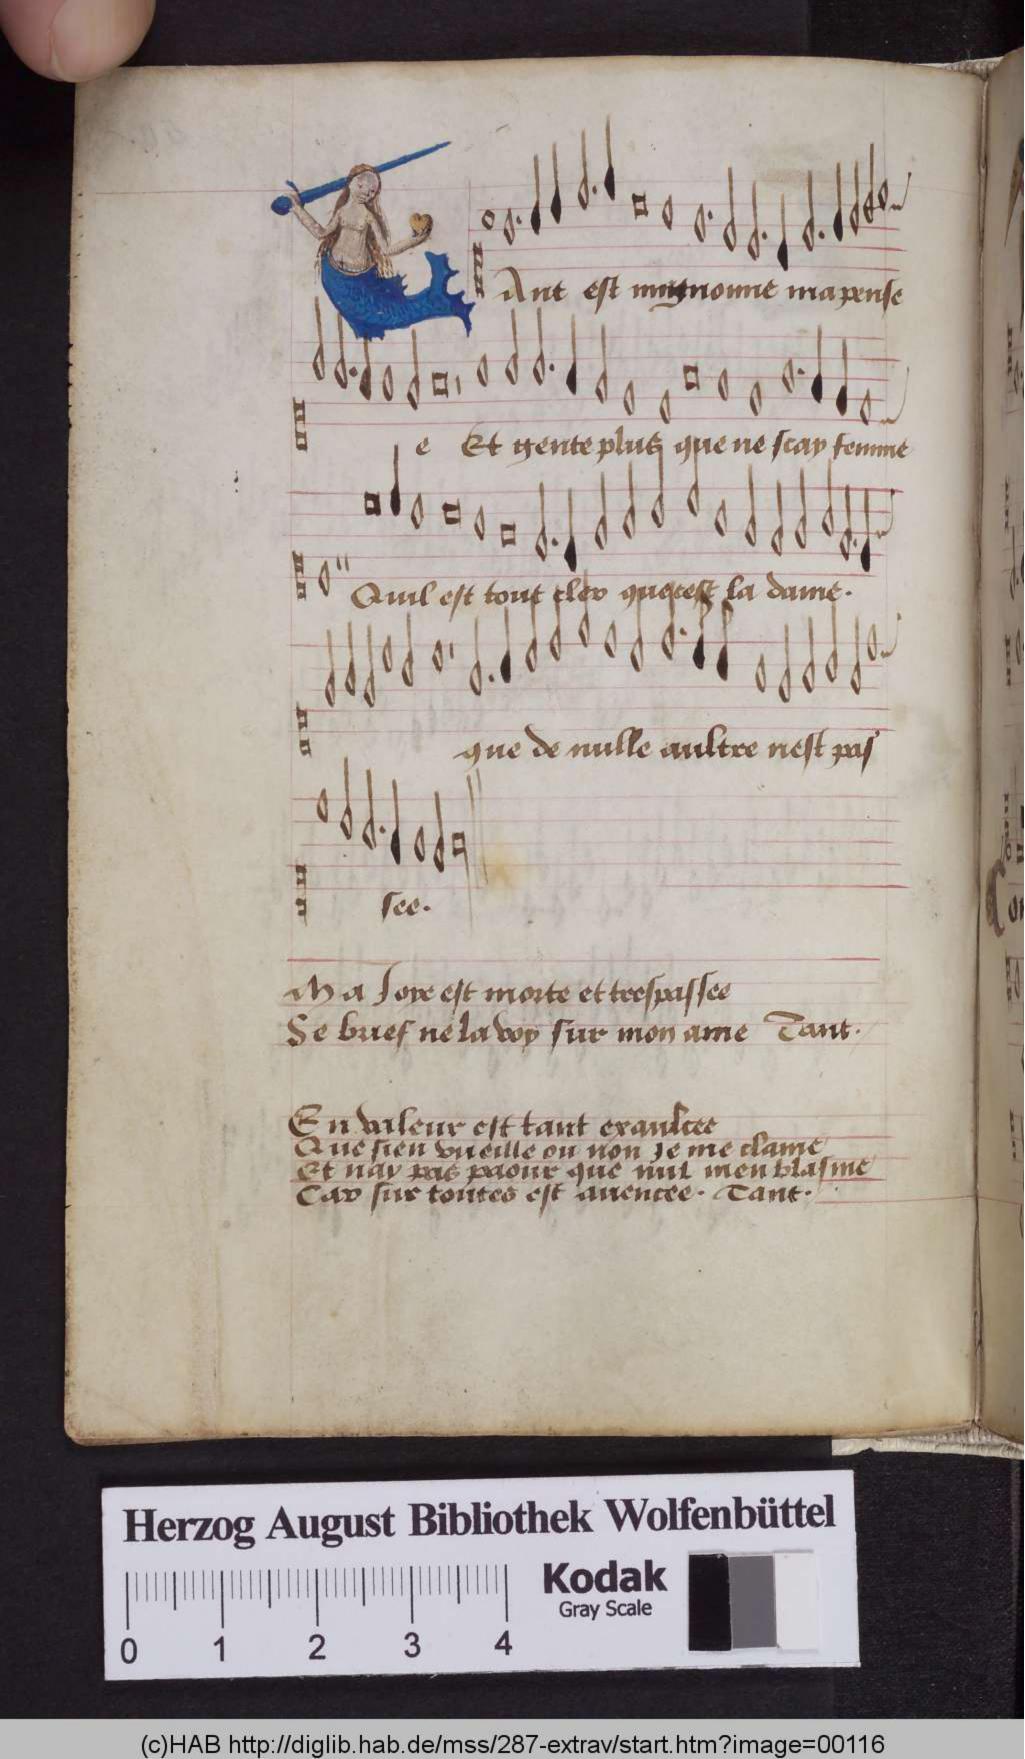 Ant est mignonne ma pense
e Et gente plus que ne scay femme
Quil est tout cler que cest la dame.
que de nulle aultre nest pas
see.
Ma Joye est morte et trespassee
Se brief ne la voy sur mon ame Tant.
En valeur est tant exaulcee
Que sien vueille ou non Je me clame
Et nay pas paour que nul men blasme
Car sur toutes est auencee. Tant.
Herzog August Bibliothek Wolfenbüttel
Kodak
Gray Scale
0 1 2 3 4
(c)HAB http://diglib.hab.de/mss/287-extrav/start.htm?image=00116